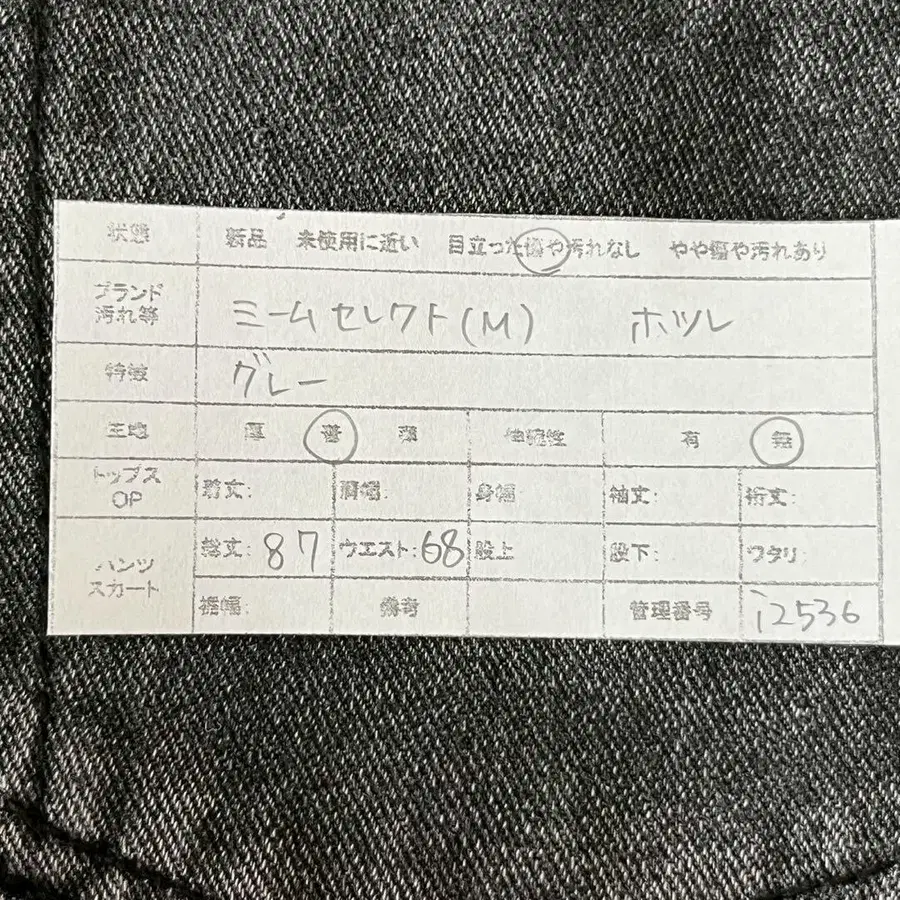 状態 新品 未使用に近い 目立った傷や汚れなし やや傷や汚れあり
ブランド
汚れ等 ミームセレクト(M) ホツレ
特徴 グレー
生地 厚 普 薄 伸縮性 有 無
トップス
OP 着丈: 肩幅: 身幅 袖丈: 裄丈:
パンツ
スカート 総丈: 87 ウエスト: 68 股上 股下: ワタリ:
裾幅: 備考 管理番号 i2536